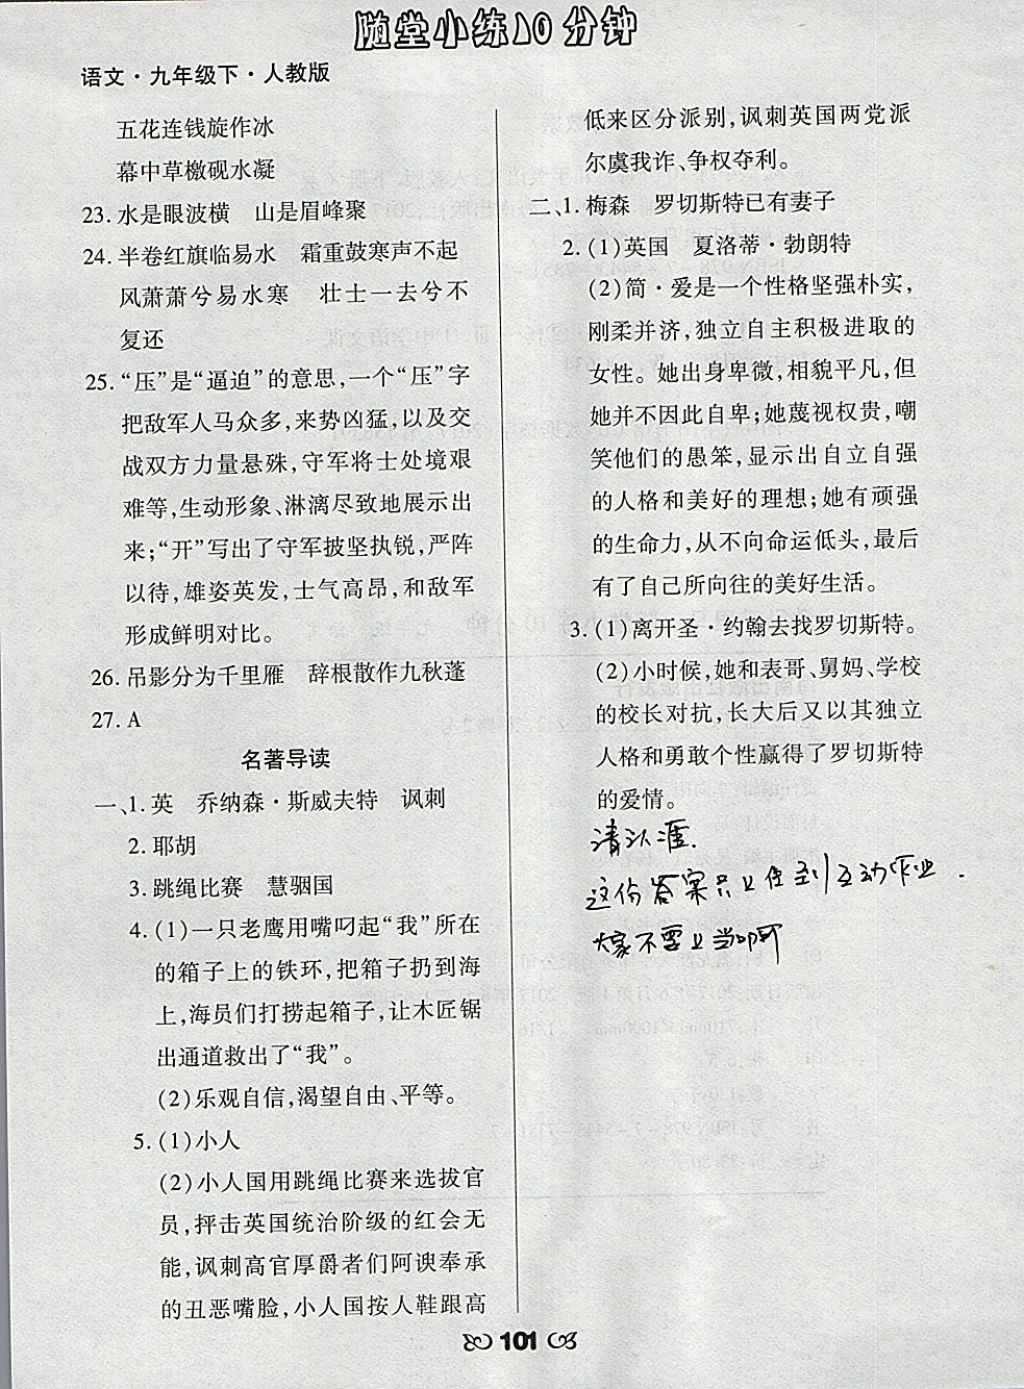 随堂小练10分钟
语文·九年级下·人教版
五花连钱旋作冰
幕中草檄砚水凝
23. 水是眼波横 山是眉峰聚
24. 半卷红旗临易水 霜重鼓寒声不起
风萧萧兮易水寒 壮士一去兮不
复还
25. “压”是“逼迫”的意思,一个“压”字
把敌军人马众多,来势凶猛,以及交
战双方力量悬殊,守军将士处境艰
难等,生动形象、淋漓尽致地展示出
来;“开”写出了守军披坚执锐,严阵
以待,雄姿英发,士气高昂,和敌军
形成鲜明对比。
26. 吊影分为千里雁 辞根散作九秋蓬
27. A
名著导读
一、1. 英 乔纳森·斯威夫特 讽刺
2. 耶胡
3. 跳绳比赛 慧骃国
4. (1)一只老鹰用嘴叼起“我”所在
的箱子上的铁环,把箱子扔到海
上,海员们打捞起箱子,让木匠锯
出通道救出了“我”。
(2)乐观自信,渴望自由、平等。
5. (1)小人
(2)小人国用跳绳比赛来选拔官
员,抨击英国统治阶级的红会无
能,讽刺高官厚爵者们阿谀奉承
的丑恶嘴脸,小人国按人鞋跟高
低来区分派别,讽刺英国两党派
尔虞我诈、争权夺利。
二、1. 梅森 罗切斯特已有妻子
2. (1)英国 夏洛蒂·勃朗特
(2)简·爱是一个性格坚强朴实,
刚柔并济,独立自主积极进取的
女性。她出身卑微,相貌平凡,但
她并不因此自卑;她蔑视权贵,嘲
笑他们的愚笨,显示出自立自强
的人格和美好的理想;她有顽强
的生命力,从不向命运低头,最后
有了自己所向往的美好生活。
3. (1)离开圣·约翰去找罗切斯特。
(2)小时候,她和表哥、舅妈、学校
的校长对抗,长大后又以其独立
人格和勇敢个性赢得了罗切斯特
的爱情。
请认准.
这份答案只上传到互动作业.
大家不要上当啊
101